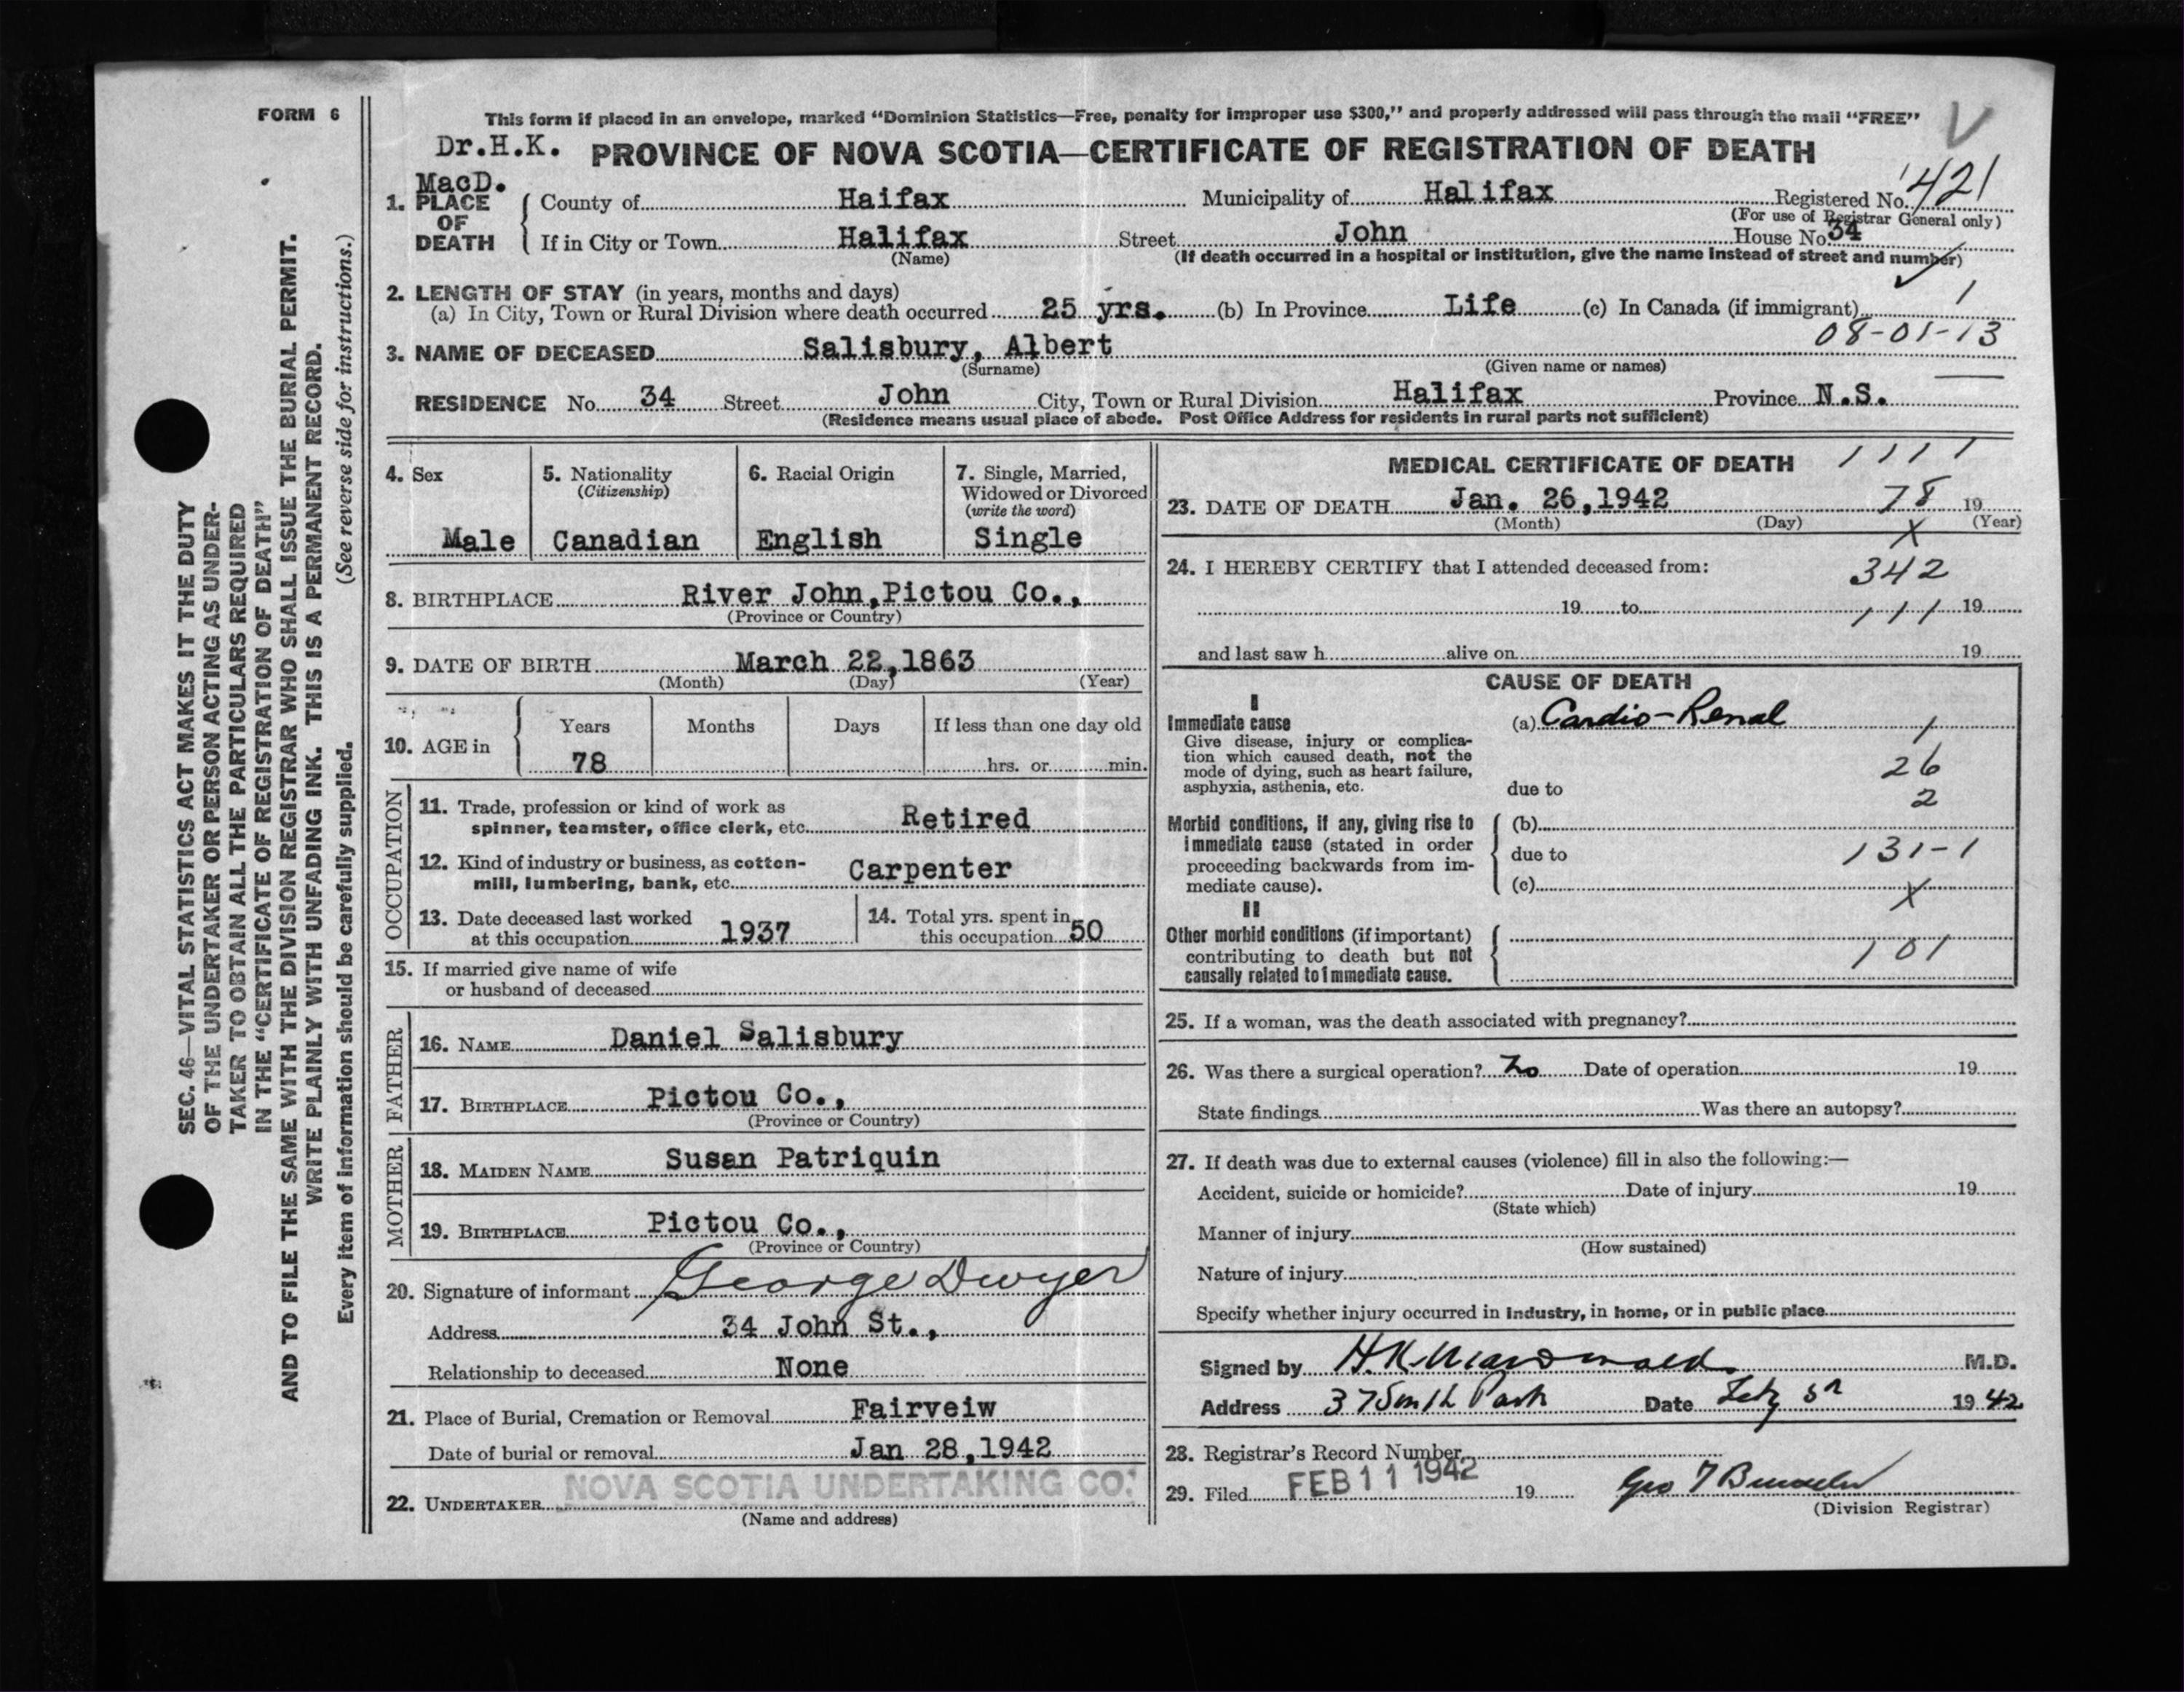 FORM 6
This form if placed in an envelope, marked "Dominion Statistics—Free, penalty for improper use $300," and properly addressed will pass through the mail "FREE"
V
Dr.H.K. PROVINCE OF NOVA SCOTIA—CERTIFICATE OF REGISTRATION OF DEATH
MacD.
1. PLACE OF DEATH
County of Haifax Municipality of Halifax Registered No. 421
(For use of Registrar General only)
If in City or Town Halifax Street John House No. 34
(Name) (If death occurred in a hospital or institution, give the name instead of street and number)
2. LENGTH OF STAY (in years, months and days)
(a) In City, Town or Rural Division where death occurred 25 yrs. (b) In Province Life (c) In Canada (if immigrant) 1
08-01-13
3. NAME OF DECEASED Salisbury, Albert
(Surname) (Given name or names)
RESIDENCE No. 34 Street John City, Town or Rural Division Halifax Province N.S.
(Residence means usual place of abode. Post Office Address for residents in rural parts not sufficient)
4. Sex
Male
5. Nationality
(Citizenship)
Canadian
6. Racial Origin
English
7. Single, Married,
Widowed or Divorced
(write the word)
Single
8. BIRTHPLACE River John,Pictou Co.,
(Province or Country)
9. DATE OF BIRTH March 22,1863
(Month) (Day) (Year)
10. AGE in
Years Months Days If less than one day old
78 hrs. or min.
OCCUPATION
11. Trade, profession or kind of work as
spinner, teamster, office clerk, etc. Retired
12. Kind of industry or business, as cotton-
mill, lumbering, bank, etc. Carpenter
13. Date deceased last worked
at this occupation 1937
14. Total yrs. spent in
this occupation 50
15. If married give name of wife
or husband of deceased
FATHER
16. NAME Daniel Salisbury
17. BIRTHPLACE Pictou Co.,
(Province or Country)
MOTHER
18. MAIDEN NAME Susan Patriquin
19. BIRTHPLACE Pictou Co.,
(Province or Country)
20. Signature of informant George Dwyer
Address 34 John St.,
Relationship to deceased None
21. Place of Burial, Cremation or Removal Fairveiw
Date of burial or removal Jan 28,1942
22. UNDERTAKER NOVA SCOTIA UNDERTAKING CO.
(Name and address)
MEDICAL CERTIFICATE OF DEATH 1111
23. DATE OF DEATH Jan. 26,1942 78 19
(Month) (Day) (Year)
X
24. I HEREBY CERTIFY that I attended deceased from: 342
19 to 111 19
and last saw h alive on 19
CAUSE OF DEATH
I
Immediate cause (a) Cardio-Renal 1
Give disease, injury or complica-
tion which caused death, not the
mode of dying, such as heart failure, 26
asphyxia, asthenia, etc. due to 2
Morbid conditions, if any, giving rise to (b)
immediate cause (stated in order due to 131-1
proceeding backwards from im-
mediate cause). (c) X
II
Other morbid conditions (if important)
contributing to death but not 101
causally related to immediate cause.
25. If a woman, was the death associated with pregnancy?
26. Was there a surgical operation? No Date of operation 19
State findings Was there an autopsy?
27. If death was due to external causes (violence) fill in also the following:—
Accident, suicide or homicide? Date of injury 19
(State which)
Manner of injury
(How sustained)
Nature of injury
Specify whether injury occurred in industry, in home, or in public place
Signed by H.K. MacDonald M.D.
Address 37 South Park Date Feby 19 42
28. Registrar's Record Number
29. Filed FEB 11 1942 19 Geo
(Division Registrar)
SEC. 46—VITAL STATISTICS ACT MAKES IT THE DUTY
OF THE UNDERTAKER OR PERSON ACTING AS UNDER-
TAKER TO OBTAIN ALL THE PARTICULARS REQUIRED
IN THE "CERTIFICATE OF REGISTRATION OF DEATH"
AND TO FILE THE SAME WITH THE DIVISION REGISTRAR WHO SHALL ISSUE THE BURIAL PERMIT.
WRITE PLAINLY WITH UNFADING INK. THIS IS A PERMANENT RECORD.
Every item of information should be carefully supplied. (See reverse side for instructions.)